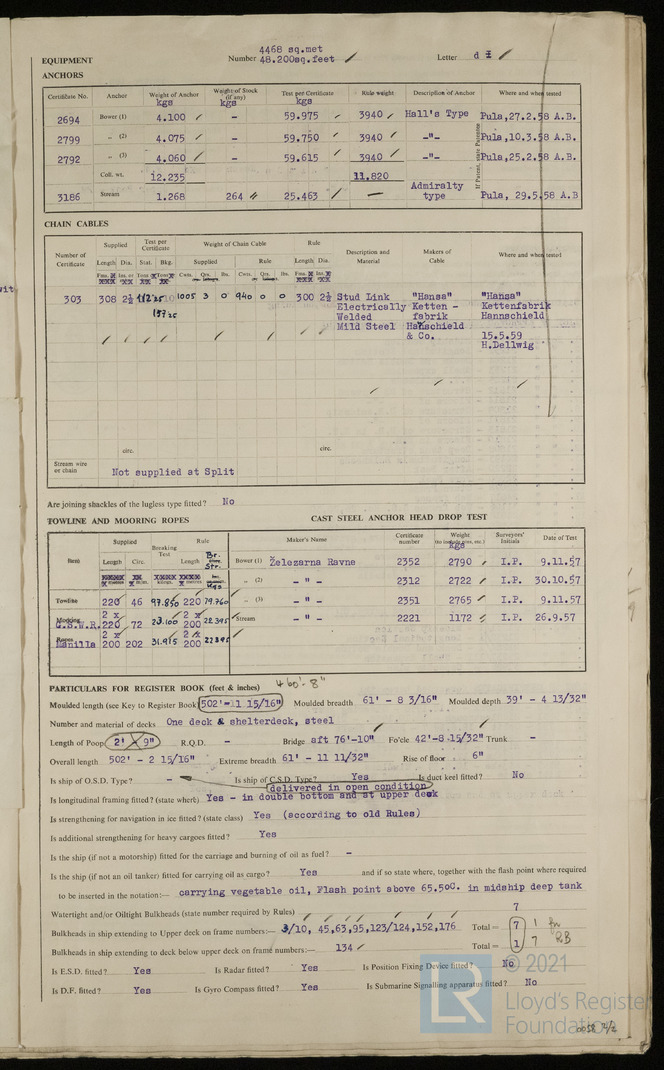 4468 sq.met
EQUIPMENT Number 48.200sq.feet Letter d
ANCHORS
Certificate No. Anchor Weight of Anchor kgs Weight of Stock (if any) kgs Test per Certificate kgs Rule weight Description of Anchor Where and when tested
2694 Bower (1) 4.100 - 59.975 3940 Hall's Type Pula,27.2.58 A.B.
2799 „ (2) 4.075 - 59.750 3940 -"- Pula,10.3.58 A.B.
2792 „ (3) 4.060 - 59.615 3940 -"- Pula,25.2.58 A.B.
Coll. wt. 12.235 11,820
3186 Stream 1.268 264 25.463 — Admiralty type Pula, 29.5.58 A.B
CHAIN CABLES
Number of Certificate Supplied Test per Certificate Weight of Chain Cable Rule Description and Material Makers of Cable Where and when tested
Length Dia. Stat. Bkg. Supplied Rule Length Dia.
Cwts. Qrs. lbs. Cwts. Qrs. lbs.
303 308 2½ 1005 3 0 940 0 0 300 2½ Stud Link "Hansa" "Hansa"
Electrically Ketten - Kettenfabrik
Welded fabrik Hannschield
Mild Steel Hanschield
& Co. 15.5.59
H.Dellwig
circ. circ.
Stream wire or chain Not supplied at Split
Are joining shackles of the lugless type fitted? No
TOWLINE AND MOORING ROPES CAST STEEL ANCHOR HEAD DROP TEST
Item Supplied Breaking Test Rule Maker's Name Certificate number Weight kgs Surveyors' Initials Date of Test
Length Circ. Length Br. Str.
Bower (1) Železarna Ravne 2352 2790 I.P. 9.11.57
„ (2) - " - 2312 2722 I.P. 30.10.57
Towline 220 46 97.850 220 79.760 „ (3) - " - 2351 2765 I.P. 9.11.57
Mooring G.S.W.R. 2 x 220 72 23.100 2 x 200 22395 Stream - " - 2221 1172 I.P. 26.9.57
Ropes Manilla 2 x 200 202 31.915 2 x 200 22395
PARTICULARS FOR REGISTER BOOK (feet & inches) 460'-8"
Moulded length (see Key to Register Book) 502'-11 15/16" Moulded breadth 61' - 8 3/16" Moulded depth 39' - 4 13/32"
Number and material of decks One deck & shelterdeck, steel
Length of Poop 2' 9" R.Q.D. - Bridge aft 76'-10" Fo'cle 42'-8 15/32" Trunk -
Overall length 502' - 2 15/16" Extreme breadth 61' - 11 11/32" Rise of floor 6"
Is ship of O.S.D. Type? - Is ship of C.S.D. Type? Yes Is duct keel fitted? No
delivered in open condition
Is longitudinal framing fitted? (state where) Yes - in double bottom and at upper deck
Is strengthening for navigation in ice fitted? (state class) Yes (according to old Rules)
Is additional strengthening for heavy cargoes fitted? Yes
Is the ship (if not a motorship) fitted for the carriage and burning of oil as fuel? -
Is the ship (if not an oil tanker) fitted for carrying oil as cargo? Yes and if so state where, together with the flash point where required
to be inserted in the notation:— carrying vegetable oil, Flash point above 65.5°C. in midship deep tank
Watertight and/or Oiltight Bulkheads (state number required by Rules) 7
Bulkheads in ship extending to Upper deck on frame numbers:— 3/10, 45,63,95,123/124,152,176 Total = 7 1
Bulkheads in ship extending to deck below upper deck on frame numbers:— 134 Total = 1 7
Is E.S.D. fitted? Yes Is Radar fitted? Yes Is Position Fixing Device fitted? No
Is D.F. fitted? Yes Is Gyro Compass fitted? Yes Is Submarine Signalling apparatus fitted? No
LR
© 2021
Lloyd's Register
Foundation